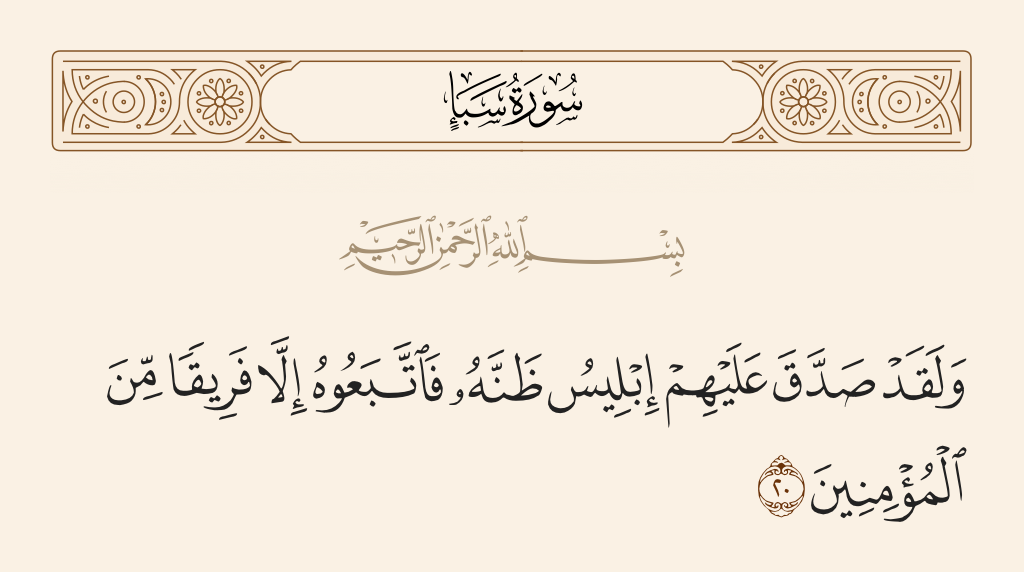 سُورَةُ سَبَإٍ
بِسْمِ ٱللَّهِ ٱلرَّحْمَٰنِ ٱلرَّحِيمِ
وَلَقَدْ صَدَّقَ عَلَيْهِمْ إِبْلِيسُ ظَنَّهُۥ فَٱتَّبَعُوهُ إِلَّا فَرِيقًا مِّنَ
ٱلْمُؤْمِنِينَ ٢٠